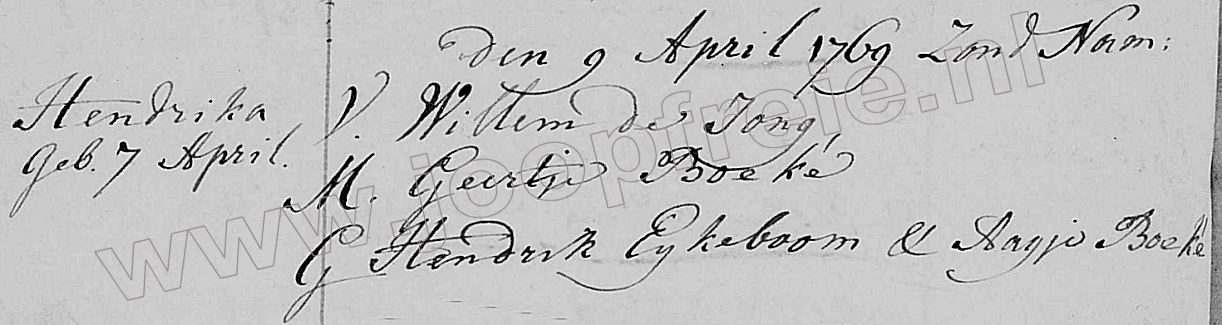 den 9 April 1769 Zond Nam:
Hendrika
geb. 7 April.
V. Willem de Jong,
M. Geertje Boeké
G Hendrik Eykeboom & Aagje Boeké
www.joopfroje.nl